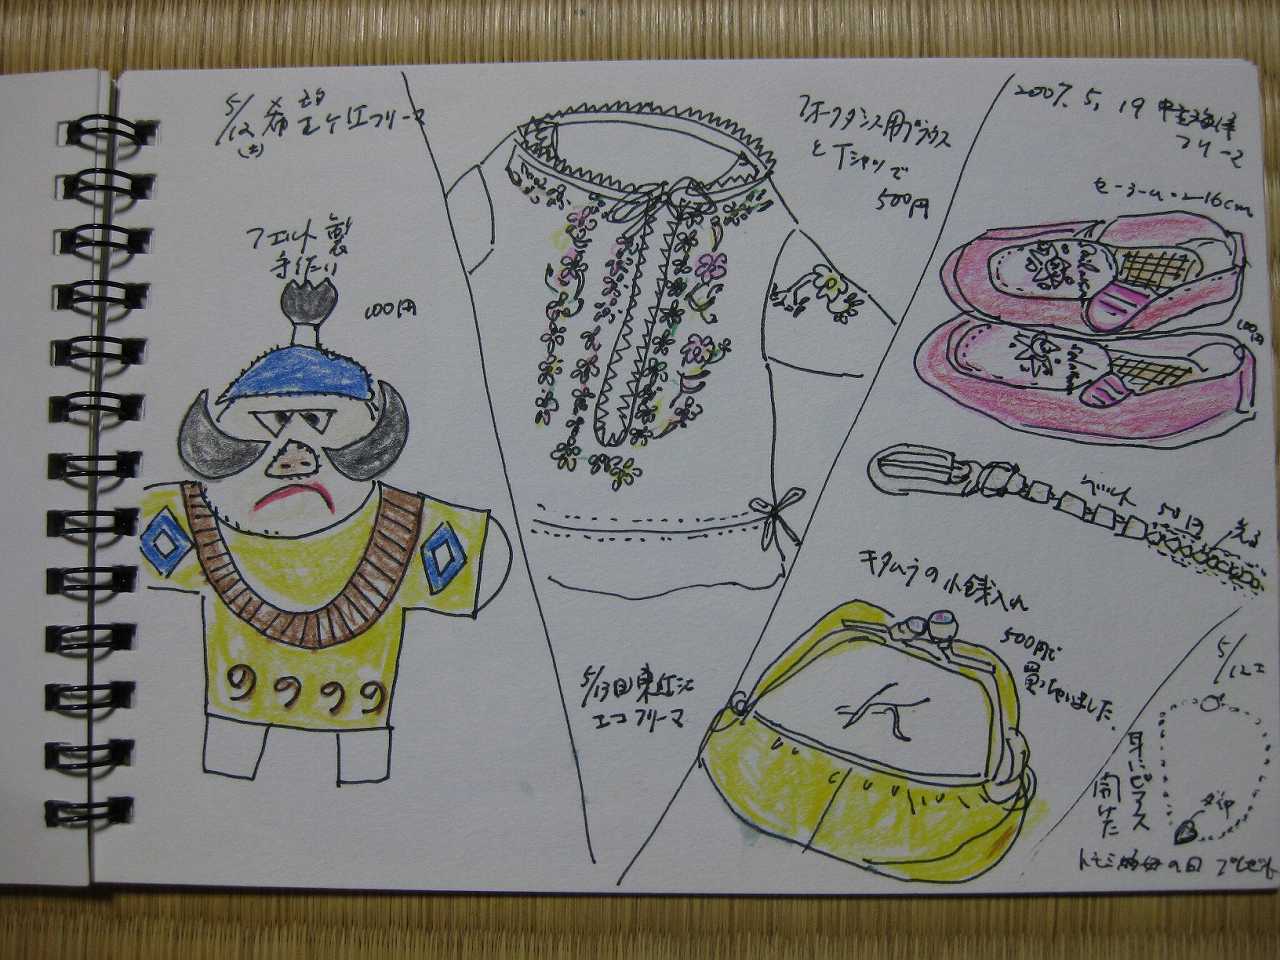 5/12 希望ヶ丘フリーマ
(土)
フェルト製
手作り
100円
フォークダンス用ブラウス
とTシャツで
500円
5/13日
エコフリーマ
2007. 5, 19
フリーマ
セーラームーン16cm
100円
ベルト 50円
光る
キタムラの小銭入れ
500円で
買っちゃいました.
K
5/12土
耳にピアス
開けた
母の日 プレゼント